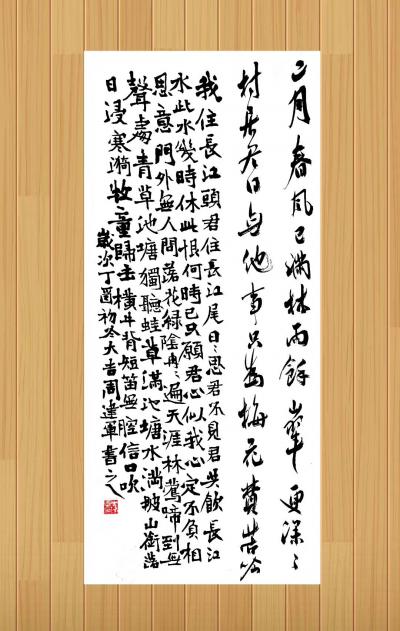 月春風已滿林雨餘山翠更深〻
村居尽日無他事只為梅花費苦吟
我住長江頭君住長江尾日〻思君不見君共飲長江
水此水幾時休此恨何時已只願君心似我心定不負相
思意門外無人問落花綠陰冉〻遍天涯林鶯啼到無
聲處青草池塘獨聽蛙草滿池塘水滿陂山銜落
日浸寒漪牧童歸去橫牛背短笛無腔信口吹
歲次丁酉初冬大吉周達軍書之